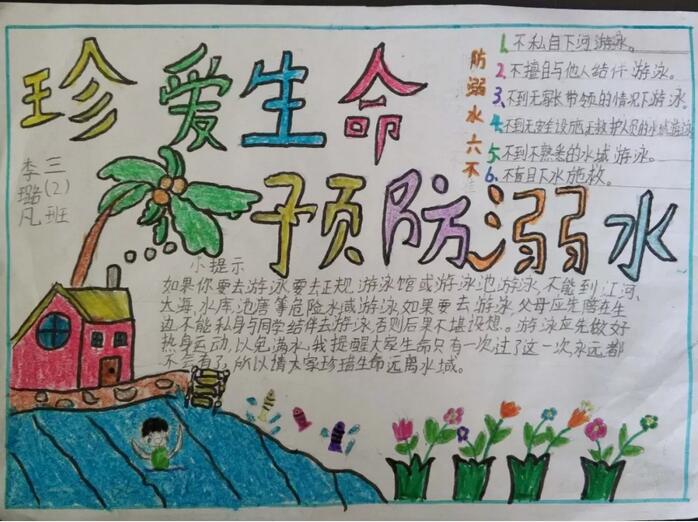 珍爱生命
预防溺水
防溺水六不准
1.不私自下河游泳。
2.不擅自与他人结伴游泳。
3.不到无家长带领的情况下游泳。
4.不到无安全设施无救护人员的水域游泳
5.不到不熟悉的水域游泳。
6.不擅自下水施救。
三(2)班
李璐凡
小提示
如果你要去游泳要去正规游泳馆或游泳池游泳,不能到江河、
大海,水库,池唐等危险水域游泳.如果要去游泳,父母应先陪在生
边不能私自与同学结伴去游泳,否则后果不堪设想。游泳应先做好
热身运动,以免满水,我提醒大家生命只有一次过了这一次,永远都
不会有了,所以请大家珍惜生命远离水域。